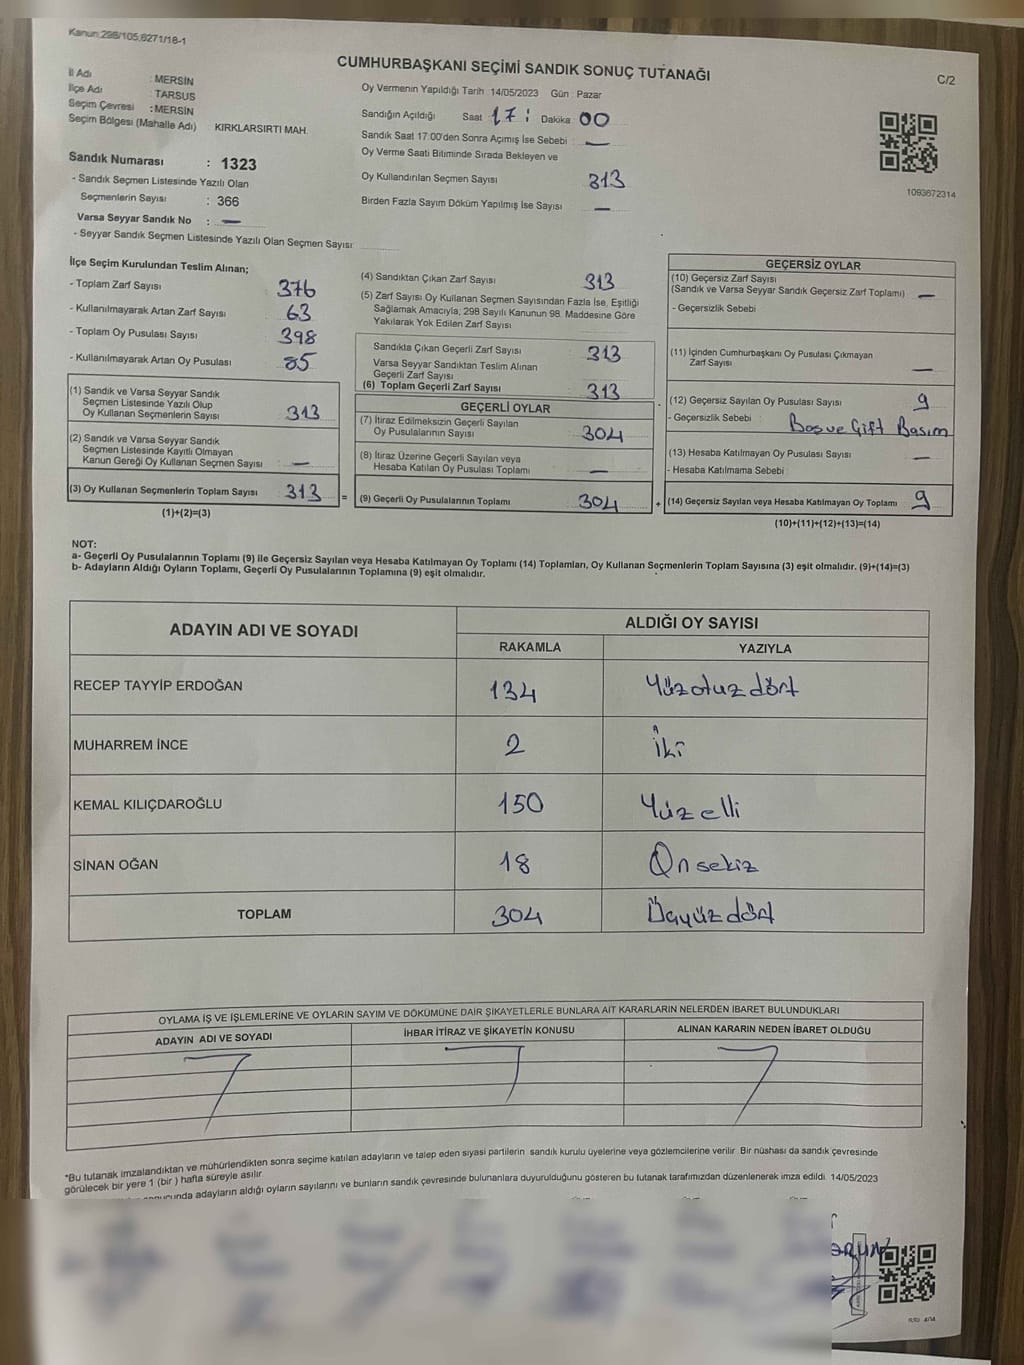 Kanun;298/105;6271/18-1
CUMHURBAŞKANI SEÇİMİ SANDIK SONUÇ TUTANAĞI
C/2
İl Adı : MERSİN
İlçe Adı : TARSUS
Seçim Çevresi : MERSİN
Seçim Bölgesi (Mahalle Adı) KIRKLARSIRTI MAH.
Sandık Numarası : 1323
- Sandık Seçmen Listesinde Yazılı Olan
Seçmenlerin Sayısı : 366
Varsa Seyyar Sandık No : —
- Seyyar Sandık Seçmen Listesinde Yazılı Olan Seçmen Sayısı
Oy Vermenin Yapıldığı Tarih 14/05/2023 Gün : Pazar
Sandığın Açıldığı Saat 17 : Dakika 00
Sandık Saat 17:00'den Sonra Açımış İse Sebebi —
Oy Verme Saati Bitiminde Sırada Bekleyen ve
Oy Kullandırılan Seçmen Sayısı 313
Birden Fazla Sayım Döküm Yapılmış İse Sayısı —
1093672314
İlçe Seçim Kurulundan Teslim Alınan;
- Toplam Zarf Sayısı 376
- Kullanılmayarak Artan Zarf Sayısı 63
- Toplam Oy Pusulası Sayısı 398
- Kullanılmayarak Artan Oy Pusulası 85
(1) Sandık ve Varsa Seyyar Sandık
Seçmen Listesinde Yazılı Olup
Oy Kullanan Seçmenlerin Sayısı 313
(2) Sandık ve Varsa Seyyar Sandık
Seçmen Listesinde Kayıtlı Olmayan
Kanun Gereği Oy Kullanan Seçmen Sayısı —
(3) Oy Kullanan Seçmenlerin Toplam Sayısı 313 =
(1)+(2)=(3)
(4) Sandıktan Çıkan Zarf Sayısı 313
(5) Zarf Sayısı Oy Kullanan Seçmen Sayısından Fazla İse, Eşitliği
Sağlamak Amacıyla; 298 Sayılı Kanunun 98. Maddesine Göre
Yakılarak Yok Edilen Zarf Sayısı
Sandıkta Çıkan Geçerli Zarf Sayısı 313
Varsa Seyyar Sandıktan Teslim Alınan
Geçerli Zarf Sayısı
(6) Toplam Geçerli Zarf Sayısı 313
GEÇERLİ OYLAR
(7) İtiraz Edilmeksizin Geçerli Sayılan
Oy Pusulalarının Sayısı 304
(8) İtiraz Üzerine Geçerli Sayılan veya
Hesaba Katılan Oy Pusulası Toplamı —
(9) Geçerli Oy Pusulalarının Toplamı 304 +
GEÇERSİZ OYLAR
(10) Geçersiz Zarf Sayısı
(Sandık ve Varsa Seyyar Sandık Geçersiz Zarf Toplamı) —
- Geçersizlik Sebebi
(11) İçinden Cumhurbaşkanı Oy Pusulası Çıkmayan
Zarf Sayısı —
(12) Geçersiz Sayılan Oy Pusulası Sayısı 9
- Geçersizlik Sebebi : Bos ve Çift Basım
(13) Hesaba Katılmayan Oy Pusulası Sayısı —
- Hesaba Katılmama Sebebi
(14) Geçersiz Sayılan veya Hesaba Katılmayan Oy Toplamı 9
(10)+(11)+(12)+(13)=(14)
NOT:
a- Geçerli Oy Pusulalarının Toplamı (9) ile Geçersiz Sayılan veya Hesaba Katılmayan Oy Toplamı (14) Toplamları, Oy Kullanan Seçmenlerin Toplam Sayısına (3) eşit olmalıdır. (9)+(14)=(3)
b- Adayların Aldığı Oyların Toplamı, Geçerli Oy Pusulalarının Toplamına (9) eşit olmalıdır.
ADAYIN ADI VE SOYADI ALDIĞI OY SAYISI
RAKAMLA YAZIYLA
RECEP TAYYİP ERDOĞAN 134 Yüzotuzdört
MUHARREM İNCE 2 İki
KEMAL KILIÇDAROĞLU 150 Yüzelli
SİNAN OĞAN 18 Onsekiz
TOPLAM 304 Üçyüzdört
OYLAMA İŞ VE İŞLEMLERİNE VE OYLARIN SAYIM VE DÖKÜMÜNE DAİR ŞİKAYETLERLE BUNLARA AİT KARARLARIN NELERDEN İBARET BULUNDUKLARI
ADAYIN ADI VE SOYADI İHBAR İTİRAZ VE ŞİKAYETİN KONUSU ALINAN KARARIN NEDEN İBARET OLDUĞU
*Bu tutanak imzalandıktan ve mühürlendikten sonra seçime katılan adayların ve talep eden siyasi partilerin sandık kurulu üyelerine veya gözlemcilerine verilir. Bir nüshası da sandık çevresinde
görülecek bir yere 1 (bir) hafta süreyle asılır.
adayların aldığı oyların sayılarını ve bunların sandık çevresinde bulunanlara duyurulduğunu gösteren bu tutanak tarafımızdan düzenlenerek imza edildi. 14/05/2023